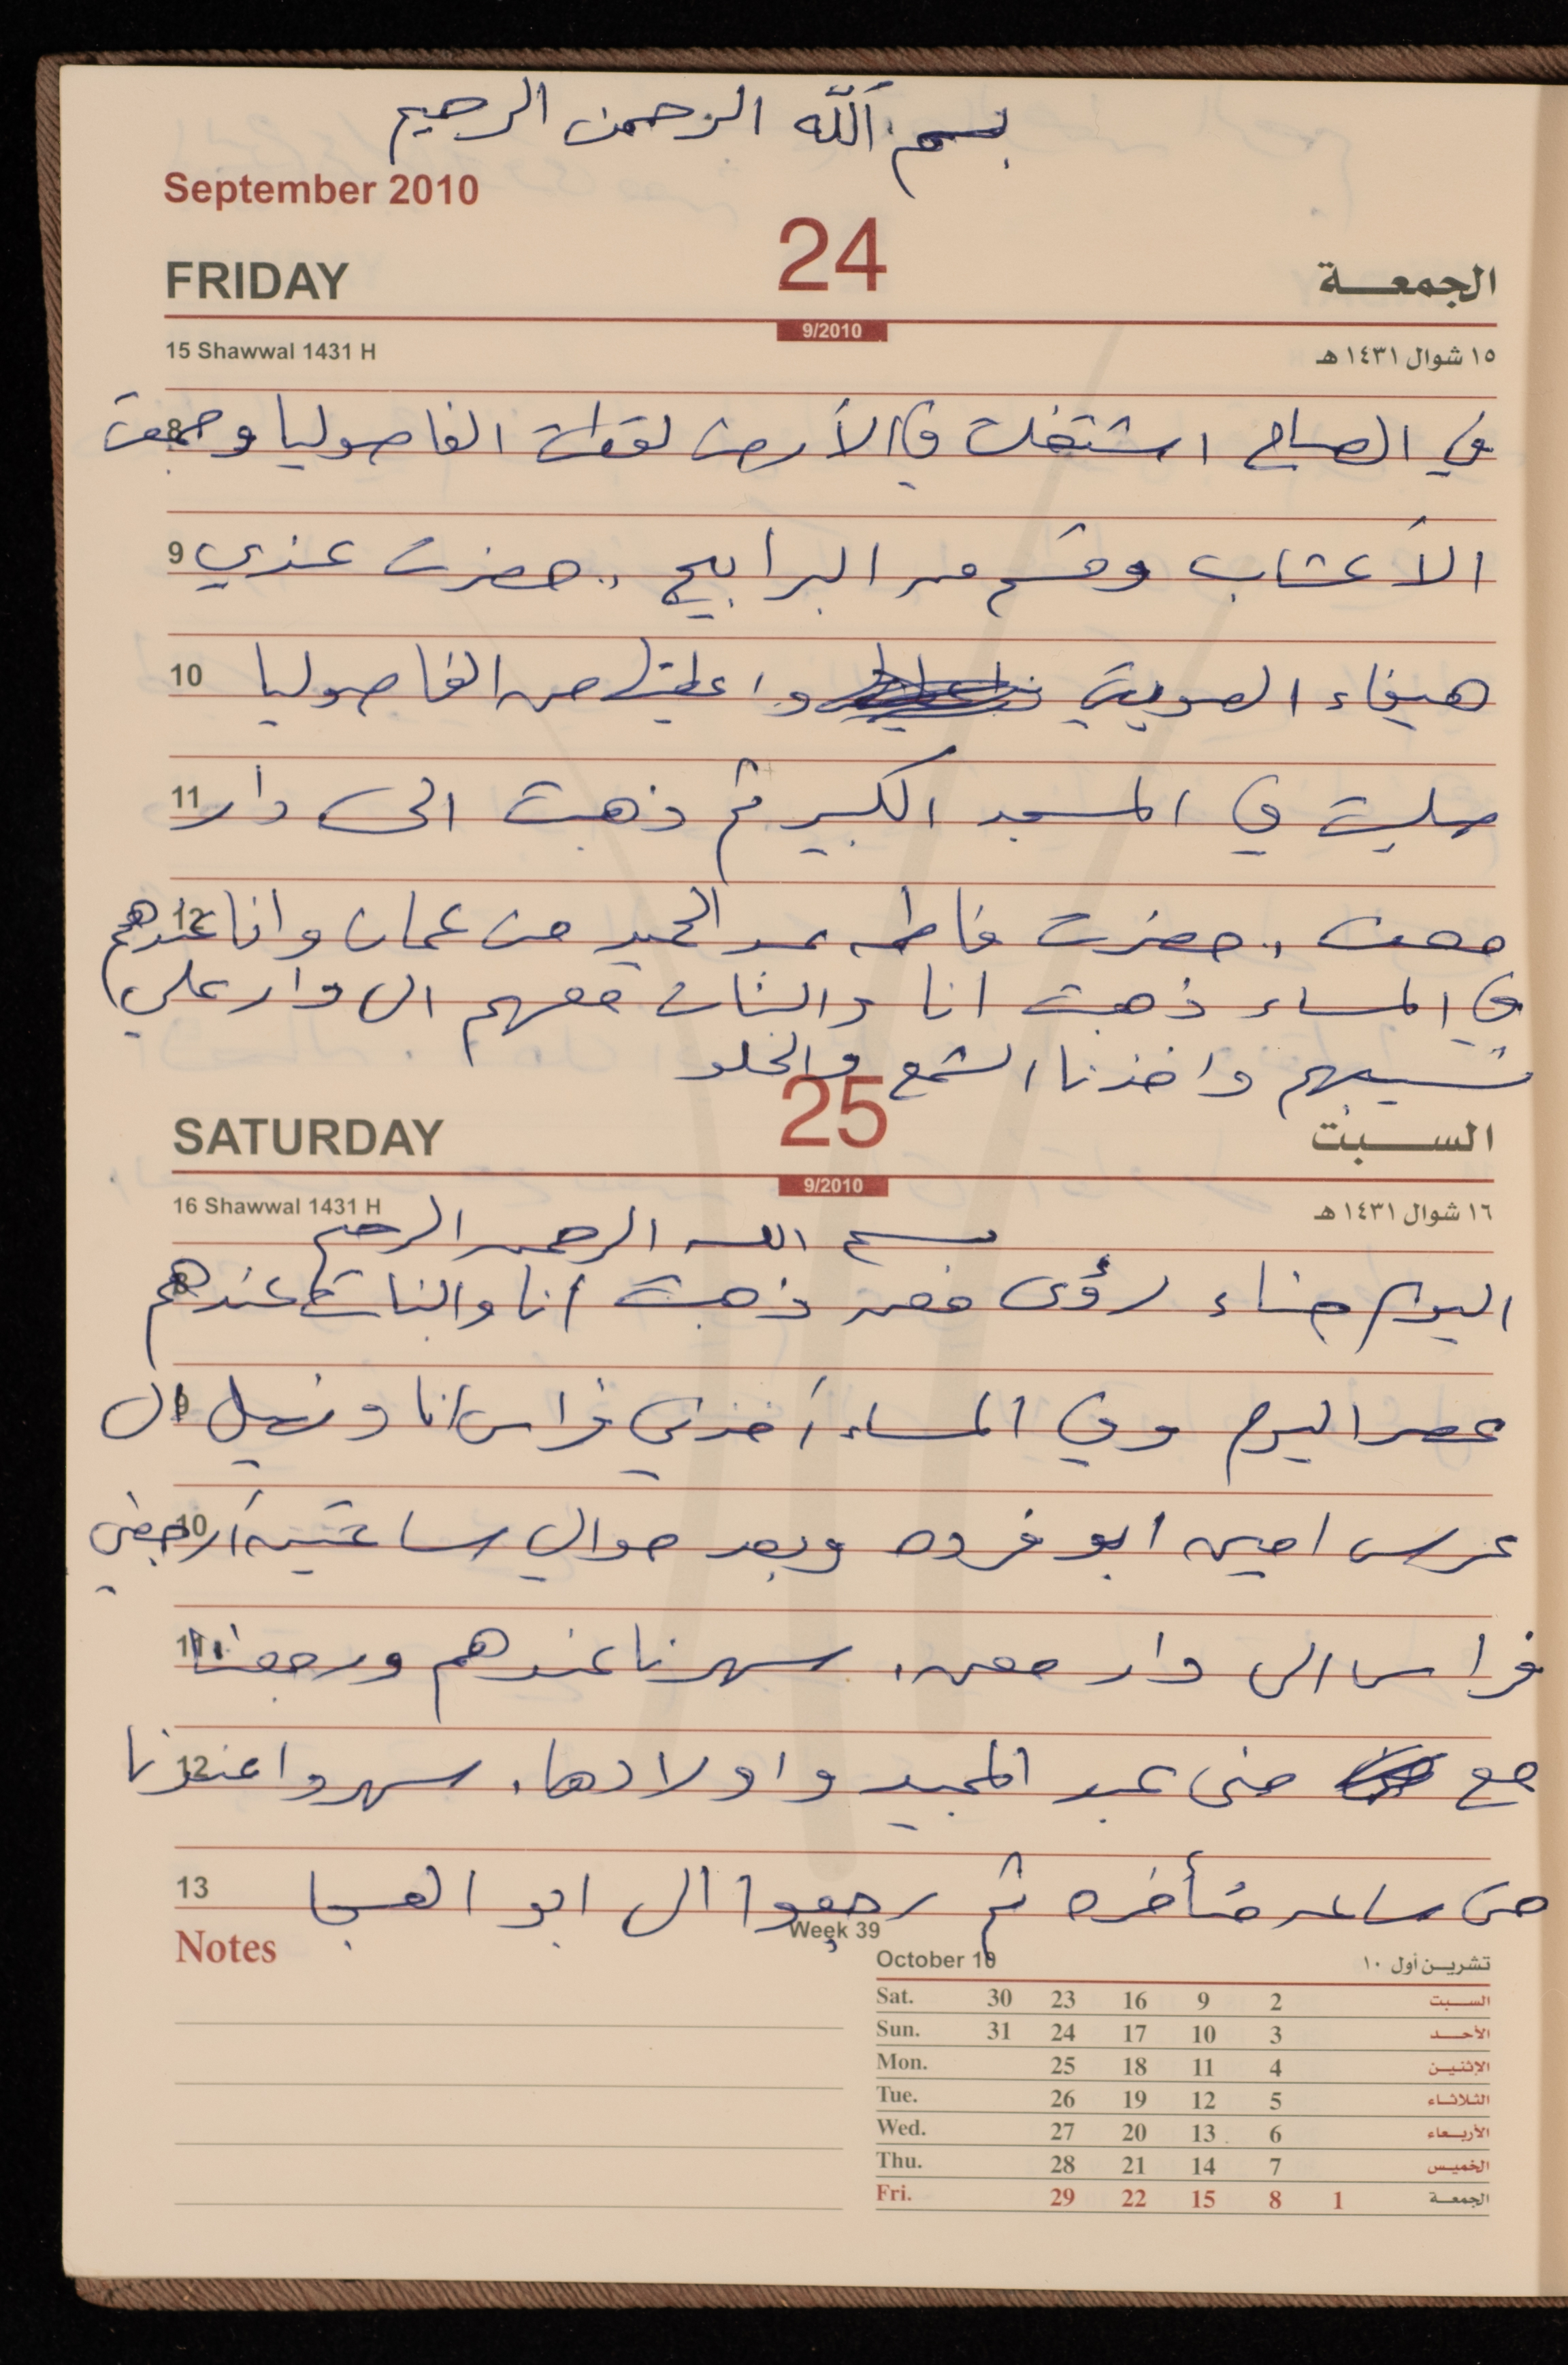 بسم الله الرحمن الرحيم
September 2010
FRIDAY 24 الجمعة
9/2010
15 Shawwal 1431 H ١٥ شوال ١٤٣١ هـ
8 في الصباح اشتغلت في الأرض لقطت الفاصوليا وجمعت
9 الأعشاب وقسم من البرابيج .. حضرت عندي
10 هيفاء واعطيتها من الفاصوليا
11 صليت في المسجد الكبير ثم ذهبت الى دار
12 معن .. حضرت فاطمه عبد الحميد من عمان وانا عندهم
في المساء ذهبت انا والبنات معهم الى دار علي
نسيبهم واخذنا الشمع والحلو
SATURDAY 25 السبت
9/2010
16 Shawwal 1431 H ١٦ شوال ١٤٣١ هـ
بسم الله الرحمن الرحيم
8 اليوم حناء لرؤى معن ذهبت أنا والبنات عندهم
9 عصر اليوم وفي المساء أخذني فراس انا و الى
10 عرس امين ابو فروه وبعد حوالي ساعتين أرجعني
11 فراس الى دار معن. سهرنا عندهم ورجعنا
12 مع منى عبد المجيد واولادها. سهروا عندنا
13 حتى ساعه متأخره ثم رجعوا الى ابو
Notes
Week 39
October 10 تشرين أول ١٠
Sat. 30 23 16 9 2 السبت
Sun. 31 24 17 10 3 الأحد
Mon. 25 18 11 4 الإثنين
Tue. 26 19 12 5 الثلاثاء
Wed. 27 20 13 6 الأربعاء
Thu. 28 21 14 7 الخميس
Fri. 29 22 15 8 1 الجمعة